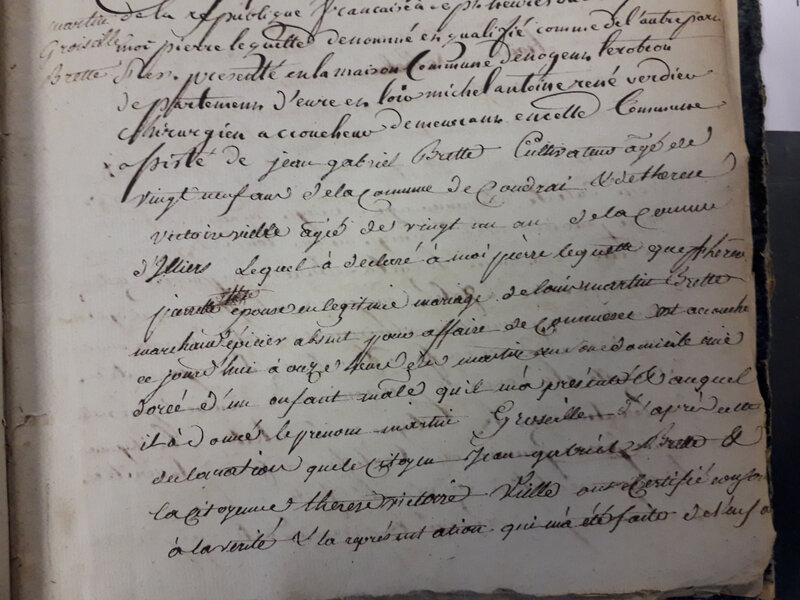 martin
Groiselle
Brette
de la republique francaise a cinq heures du
moi pierre lequette denommé en qualifié comme de l'autre part
s'est presenté en la maison Commune de nogent le rotrou
departement d'eure en loir michel antoine rené verdier
Chirurgien acoucheur demeurant en cette Commune
asisté de jean gabriel Brette Cultivateur âgé de
vingt neuf ans de la comune de Coudrai & de therese
victoire vielle agée de vingt un an de la comune
d'Illiers Lequel à declaré à moi pierre lequette que
épouse en legitime mariage de louis martin Brette
marchand épicier absent pour affaire de Commerce est accouchée
ce jourd'hui à onze heure du matin en son domicile rue
dorée d'un enfant mâle qu'il m'a presenté & auquel
il à donné le prenom martin Groseille d'après cette
declaration que le Citoyen Jean gabriel Brette &
la Citoyenne therese victoire Vielle ont Certifié
à la verité & la représentation qui m'a été faite de l'enfant